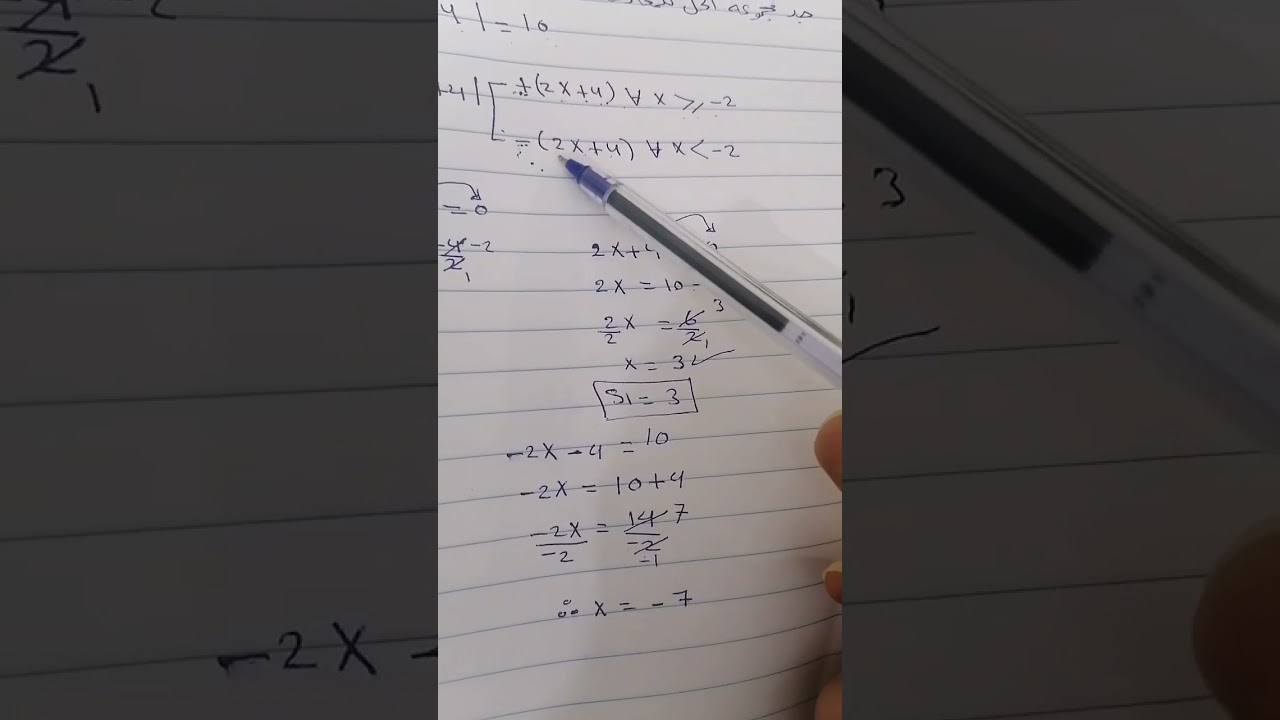 جد مجموعة الحل
4| = 10
+4| +(2x+4) ∀ x ≥ -2
-(2x+4) ∀ x < -2
= 0
-4 -2
2 1
2x+4
2x = 10 -
2/2 x = 6/2 3 1
x = 3 ✓
S1 = 3
-2x - 4 = 10
-2x = 10+4
-2x/-2 = 14/-2 7 -1
∴ x = -7